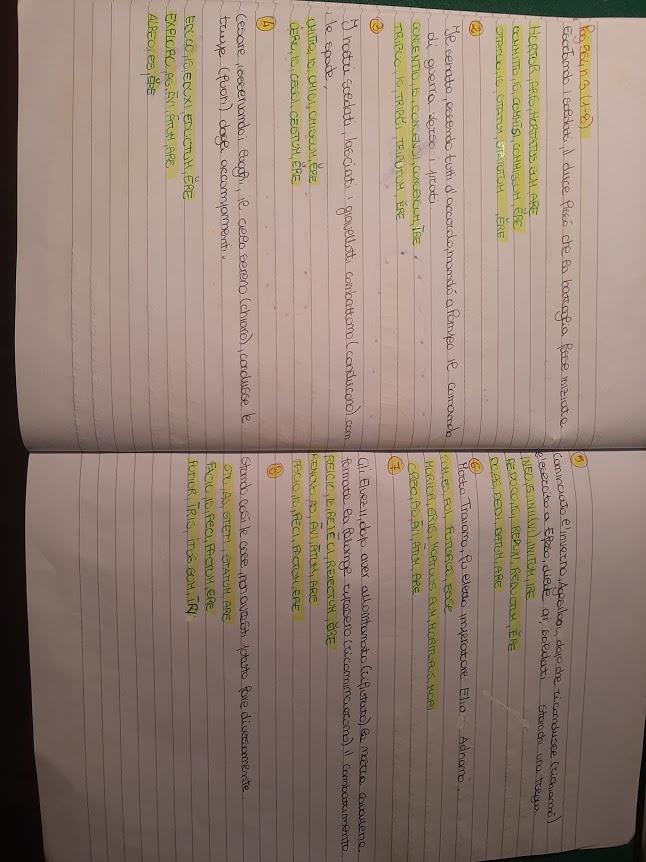 Pag 501 n 3 (1-8)
Esortando i soldati, il duce fissò che la battaglia fosse iniziata
HORTOR, ARIS, HORTATUS SUM, ARI
COMMITTO, IS, COMMISI, COMMISSUM, ĔRE
STATUO, IS, STATUI, STATUTUM, ĔRE
2
Il senato, essendo tutti d'accordo, mandò a Pompeo il comando
di guerra verso i pirati
CONSENTIO, IS, CONSENSI, CONSENSUM, IRE
TRIBUO, IS, TRIBUI, TRIBUTUM, ĔRE
3
I nostri soldati, lasciati i giavellotti combattono (conducono) con
le spade,
OMITTO, IS, OMISI, OMISSUM, ĔRE
GERO, IS, GESSI, GESTUM, ĔRE
4
Cesare, osservando i luoghi, il cielo sereno (chiaro), condusse le
truppe (fuori) dagli accampamenti.
EDUCO, IS, EDUXI, EDUCTUM, ĔRE
EXPLORO, AS, AVI, ATUM, ARE
ALBEO, ES, ĒRE
5
Cominciato l'inverno, Agesilao, dopo che ricondusse (richiamò)
l'esercito a Efeso, diede ai soldati stanchi una tregua
INEO, IS, INII (IVI), INITUM, IRE
REDUCO, IS, REDUXI, REDUCTUM, ĔRE
DO, AS, DEDI, DATUM, ARE
6
Morto Traiano, fu eletto imperatore Elio Adriano.
SUM, ES, FUI, FUTURUS, ESSE
MORIOR, ERIS, MORTUUS SUM, MORITURUS, MORI
CREO, AS, AVI, ATUM, ARE
7
Gli Elvezi, dopo aver allontanato (rifiutato) la nostra cavalleria
formata la falange ripresero (ricominciarono) il combattimento
REICIO, IS, REIECI, REIECTUM, ĔRE
RENOVO, AS, AVI, ATUM, ARE
FACIO, IS, FECI, FACTUM, ĔRE
8
Stando così le cose, non avresti potuto fare diversamente.
STO, AS, STETI, STATUM, ARE
FACIO, IS, FECI, FACTUM, ĔRE
POTIOR, IRIS, ITUS SUM, IRI